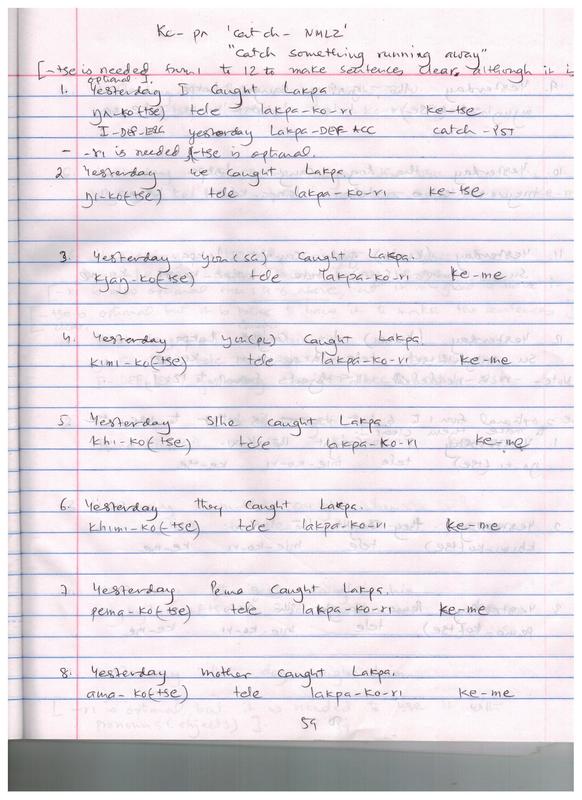 Ke-pa 'catch-NMLZ'
"catch something running away"
[-tse is needed from 1 to 12 to make sentences clear, although it is
optional].
1. Yesterday I caught Lakpa.
ŋa-ko(tse) tele lakpa-ko-ri ke-tse
I-DEF-ERG yesterday Lakpa-DEF-ACC catch-PST
- -ri is needed & -tse is optional.
2 Yesterday we caught Lakpa
ŋi-ko(tse) tele lakpa-ko-ri ke-tse
3. Yesterday you(SG) caught Lakpa.
kjaŋ-ko(-tse) tele lakpa-ko-ri ke-me
4. Yesterday you(PL) caught Lakpa.
kimi-ko(-tse) tele lakpa-ko-ri ke-me
5. Yesterday s/he caught Lakpa.
khi-ko(-tse) tele lakpa-ko-ri ke-me
6. Yesterday they caught Lakpa.
khimi-ko(-tse) tele lakpa-ko-ri ke-me
7. Yesterday Pema caught Lakpa.
pema-ko(-tse) tele lakpa-ko-ri ke-me
8. Yesterday mother caught Lakpa.
ama-ko(-tse) tele lakpa-ko-ri ke-me
59